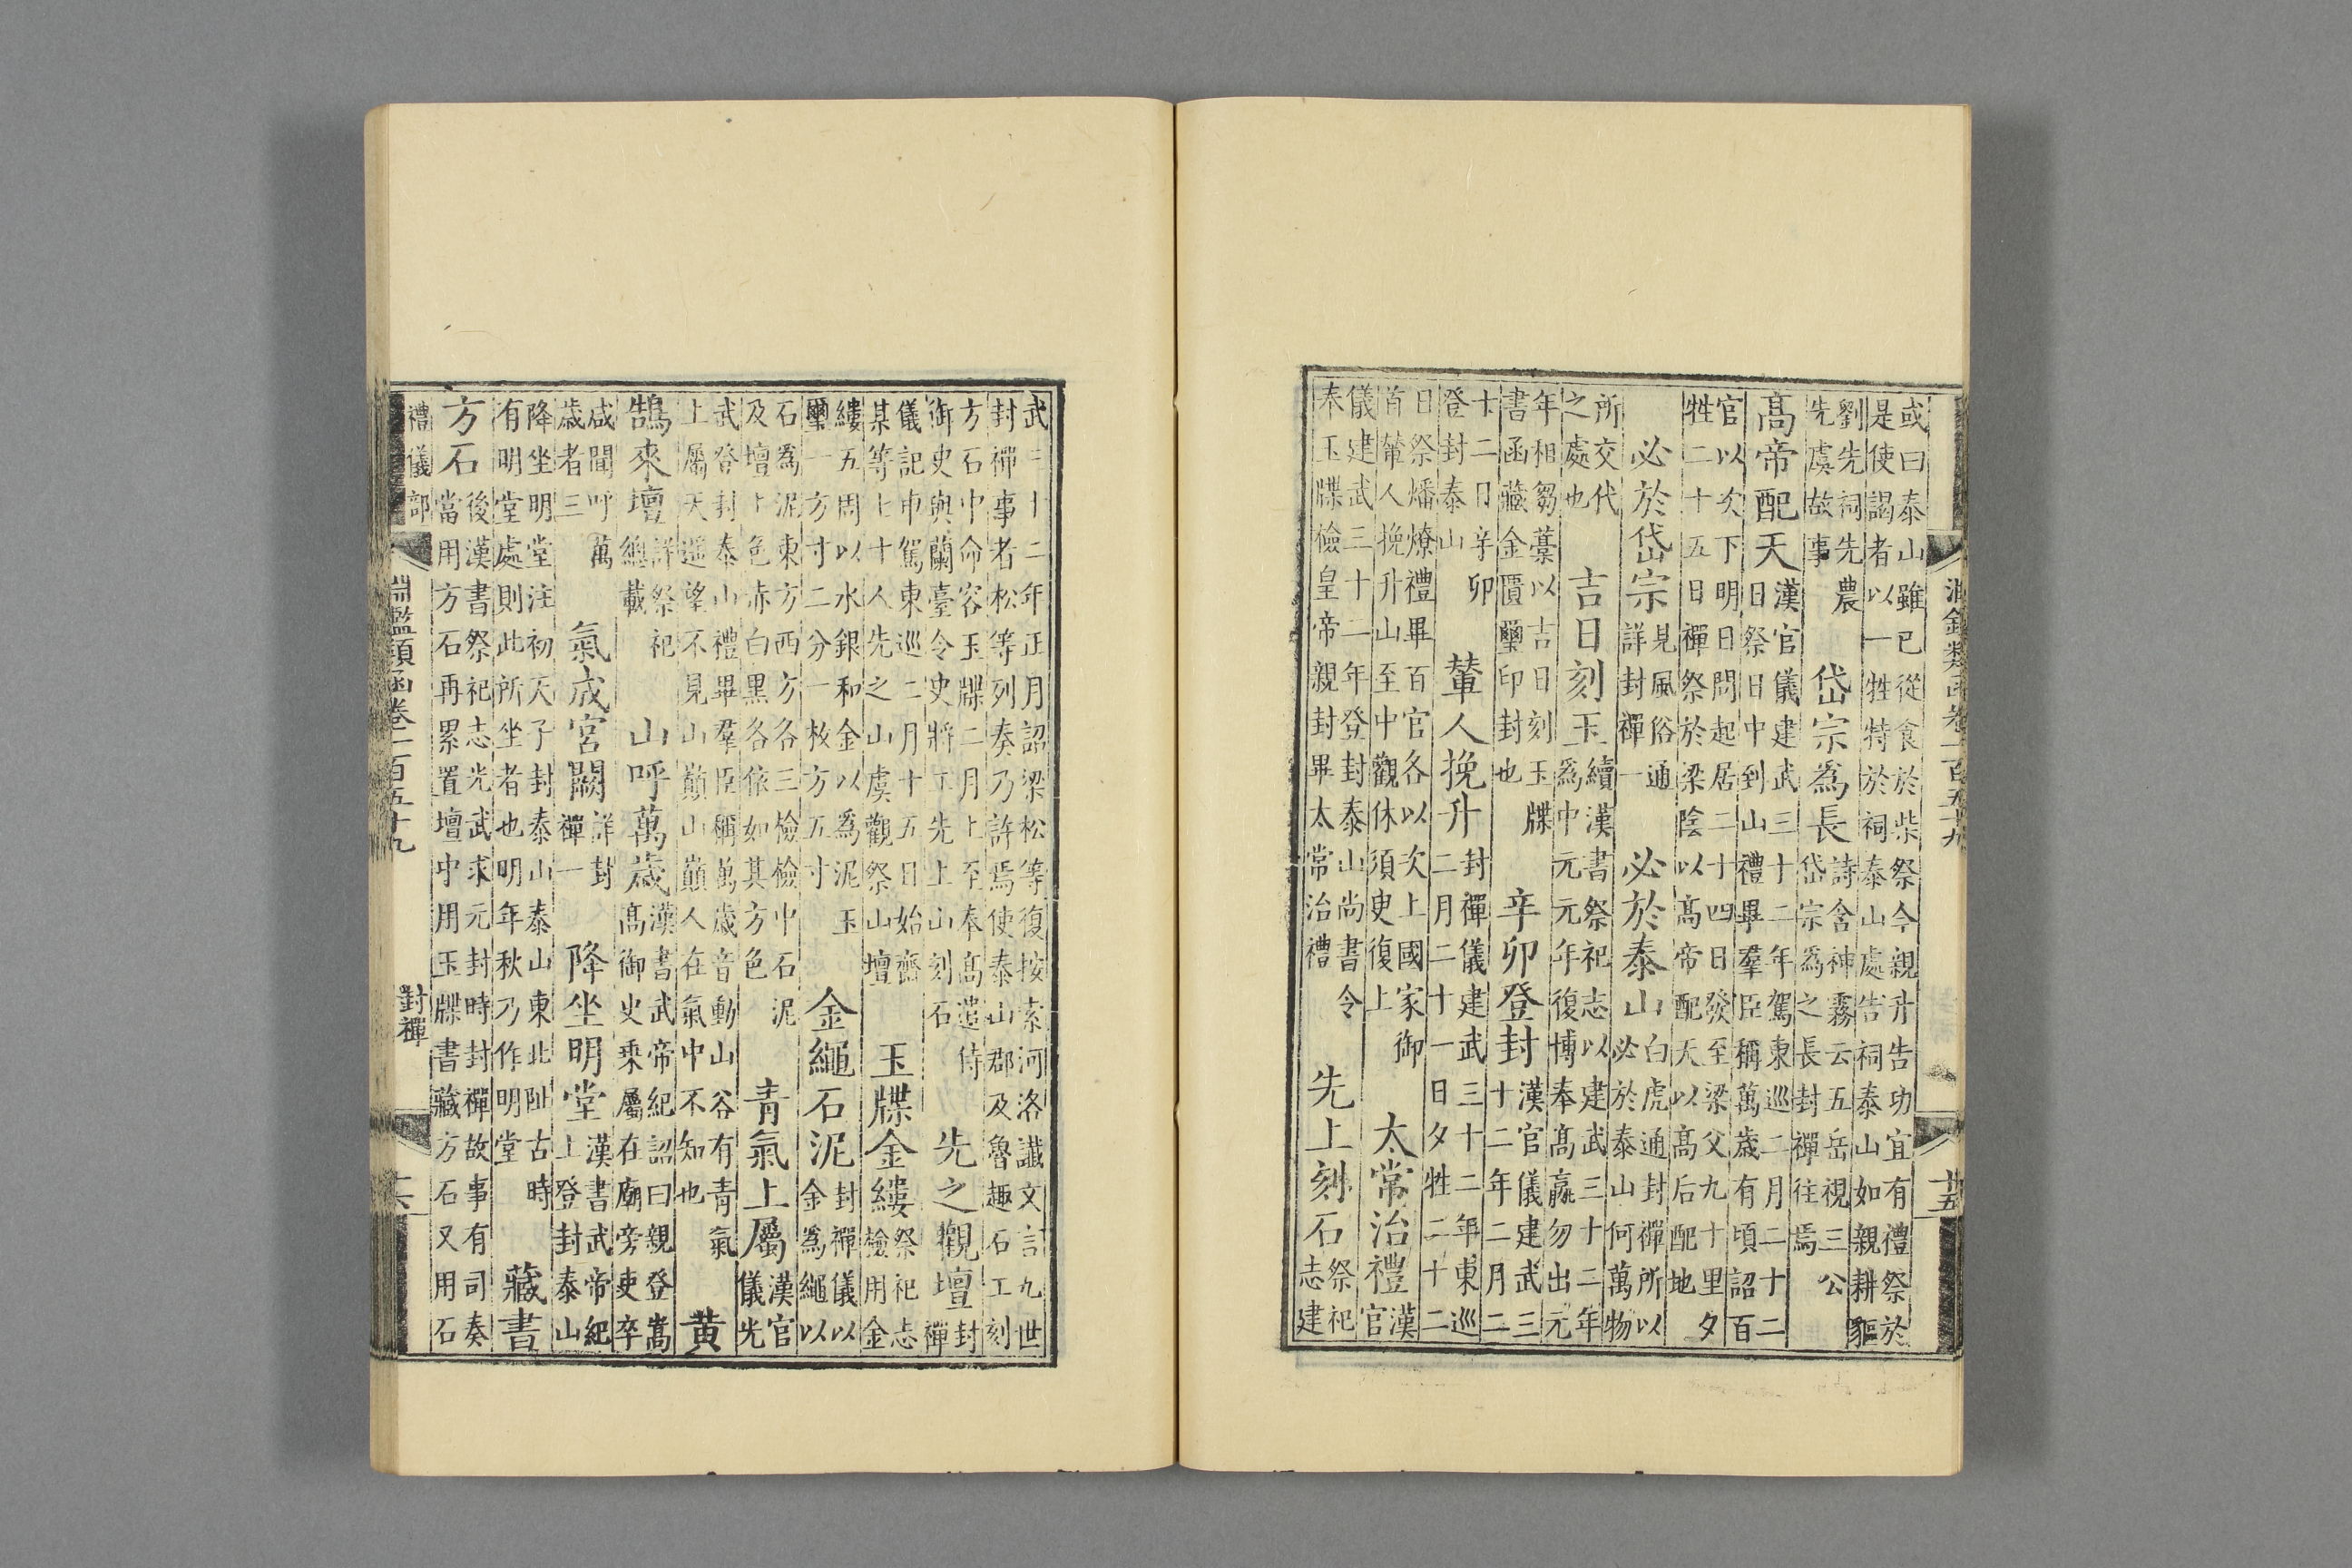 淵鑑類函卷一百五十九
十五
或曰泰山雖已從食於柴祭今親升告功宜有禮祭於
是使謁者以一牲特於祠泰山處告祠泰山如親耕貙
劉先祠先農
先虞故事
岱宗為長
詩含神霧云五岳視三公
岱宗為之長封禪往焉
高帝配天
漢官儀建武三十二年駕東巡二月二十二
日祭日中到山禮畢羣臣稱萬歲有頃詔百
官以次下明日問起居二十四日發至梁父九十里夕
牲二十五日禪祭於梁陰以高帝配天以高后配地
必於岱宗
見風俗通
詳封禪一
必於泰山
白虎通封禪所以
必於泰山何萬物
所交代
之處也
吉日刻玉
續漢書祭祀志以建武三十二年
為中元元年復博奉高嬴勿出元
年相芻藁以吉日刻玉牒
書函藏金匱璽印封也
辛卯登封
漢官儀建武三
十二年二月二
十二日辛卯
登封泰山
輦人挽升
封禪儀建武三十二年東巡
二月二十一日夕牲二十二
日祭燔燎禮畢百官各以次上國家御
首輦人挽升山至中觀休須臾復上
太常治禮
漢
官
儀建武三十二年登封泰山尚書令
奉玉牒檢皇帝親封畢太常治禮
先上刻石
祭祀
志建
武三十二年正月詔梁松等復按索河洛讖文言九世
封禪事者松等列奏乃許焉使泰山郡及魯趣石工刻
方石中命容玉牒二月上至奉高遣侍
御史與蘭臺令史將工先上山刻石
先之觀壇
封
禪
儀記車駕東巡二月十五日始齋
某等七十人先之山虞觀祭山壇
玉牒金縷
祭祀志
檢用金
縷五周以水銀和金以為泥玉
璽一方寸二分一枚方五寸
金繩石泥
封禪儀以
金為繩以
石為泥東方西方各三檢檢中石泥
及壇上色赤白黑各依如其方色
青氣上屬
漢官
儀光
武登封泰山禮畢羣臣稱萬歲音動山谷有青氣
上屬天遥望不見山巔山巔人在氣中不知也
黄
鵠來壇
詳祭祀
總載
山呼萬歲
漢書武帝紀詔曰親登嵩
高御史乘屬在廟旁吏卒
咸聞呼萬
歲者三
氣成宮闕
詳封
禪一
降坐明堂
漢書武帝紀
上登封泰山
降坐明堂注初天子封泰山泰山東北阯古時
有明堂處則此所坐者也明年秋乃作明堂
藏書
方石
後漢書祭祀志光武求元封時封禪故事有司奏
當用方石再累置壇中用玉牒書藏方石又用石
禮儀部
淵鑑類函卷一百五十九
封禪
十六